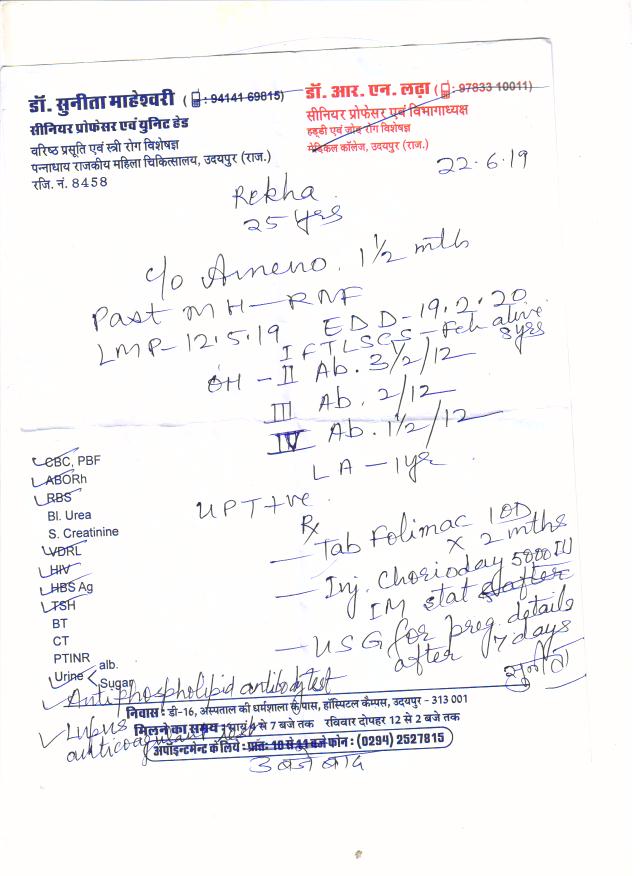 डॉ. सुनीता माहेश्वरी ( : 94141 69815)
सीनियर प्रोफेसर एवं युनिट हेड
वरिष्ठ प्रसूति एवं स्त्री रोग विशेषज्ञ
पन्नाधाय राजकीय महिला चिकित्सालय, उदयपुर (राज.)
रजि. नं. 8458
डॉ. आर. एन. लढ़ा ( : 97833 10011)
सीनियर प्रोफेसर एवं विभागाध्यक्ष
हड्डी एवं जोड़ रोग विशेषज्ञ
मेडिकल कॉलेज, उदयपुर (राज.)
22.6.19
Rekha
25 yrs
c/o Ameno. 1½ mth
Past MH - RNF
LMP - 12.5.19 EDD - 19.2.20
I FTLSCS - Fch alive 8yrs
OH - II Ab. 3½/12
III Ab. 2/12
IV Ab. 1½/12
LA - 1yr
UPT +ve
CBC, PBF
ABORh
RBS
Bl. Urea
S. Creatinine
VDRL
HIV
HBS Ag
TSH
BT
CT
PTINR
Urine alb.
Sugar
Rx
- Tab Folimac 1OD
x 2 mths
- Inj. Chorioday 5000 IU
IM stat after
- USG for preg. details
after 7 days
सुनीता
Antiphospholipid antibody test
Lupus
anticoagulant
निवास : डी-16, अस्पताल की धर्मशाला के पास, हॉस्पिटल कैम्पस, उदयपुर - 313 001
मिलने का समय : सायं 5 से 7 बजे तक रविवार दोपहर 12 से 2 बजे तक
अपॉइन्टमेन्ट के लिये : प्रातः 10 से 11 बजे फोन : (0294) 2527815
3 बजे बाद